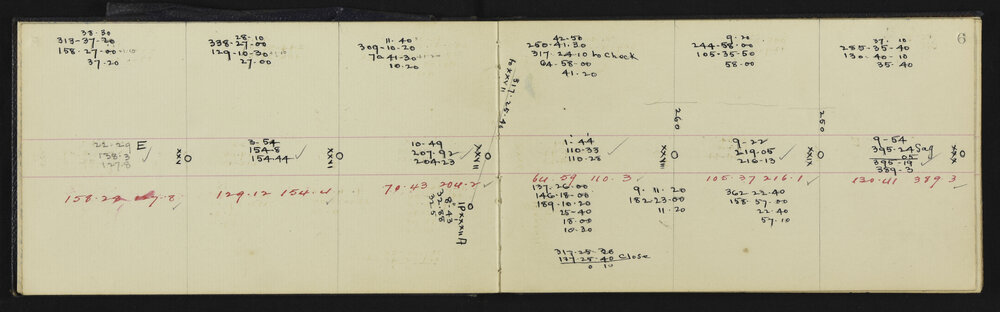 6
38.30
313-37-20
158.27.00
37.20
28.10
338-27-00
129-10-30
27.00
11.40
309-10-20
70.41-30
10.20
42-50
250.41.30
317.24.10 to check
64-58-00
41.20
9.20
244-58-00
105-35-50
58.00
37.10
285-35-40
130-40-10
35.40
to XXXVII 317.25.40
260
250
22.29 E
158.3
127.8
XXV
3-54
154-8
154.44
XXVI
10.49
207.92
204.23
XXVII
1.44
110-33
110-28
XXVIII
9-22
219.05
216.13
XXIX
9-54
395.24 Sag
05
395.19
389.3
XXX
158.28
129.12 154.4
70.43.204.2
64.59 110.3
105.37 216.1
130.41 389.3
8.43
32.88
32.5
IP XXXVII A
137.26.00
146.18.00
189.10.20
25-40
18.00
10.30
9.11.20
182.23.00
11.20
362.22.40
158.57.00
22.40
57.10
317.25.30
137.25.40 Close
0 10